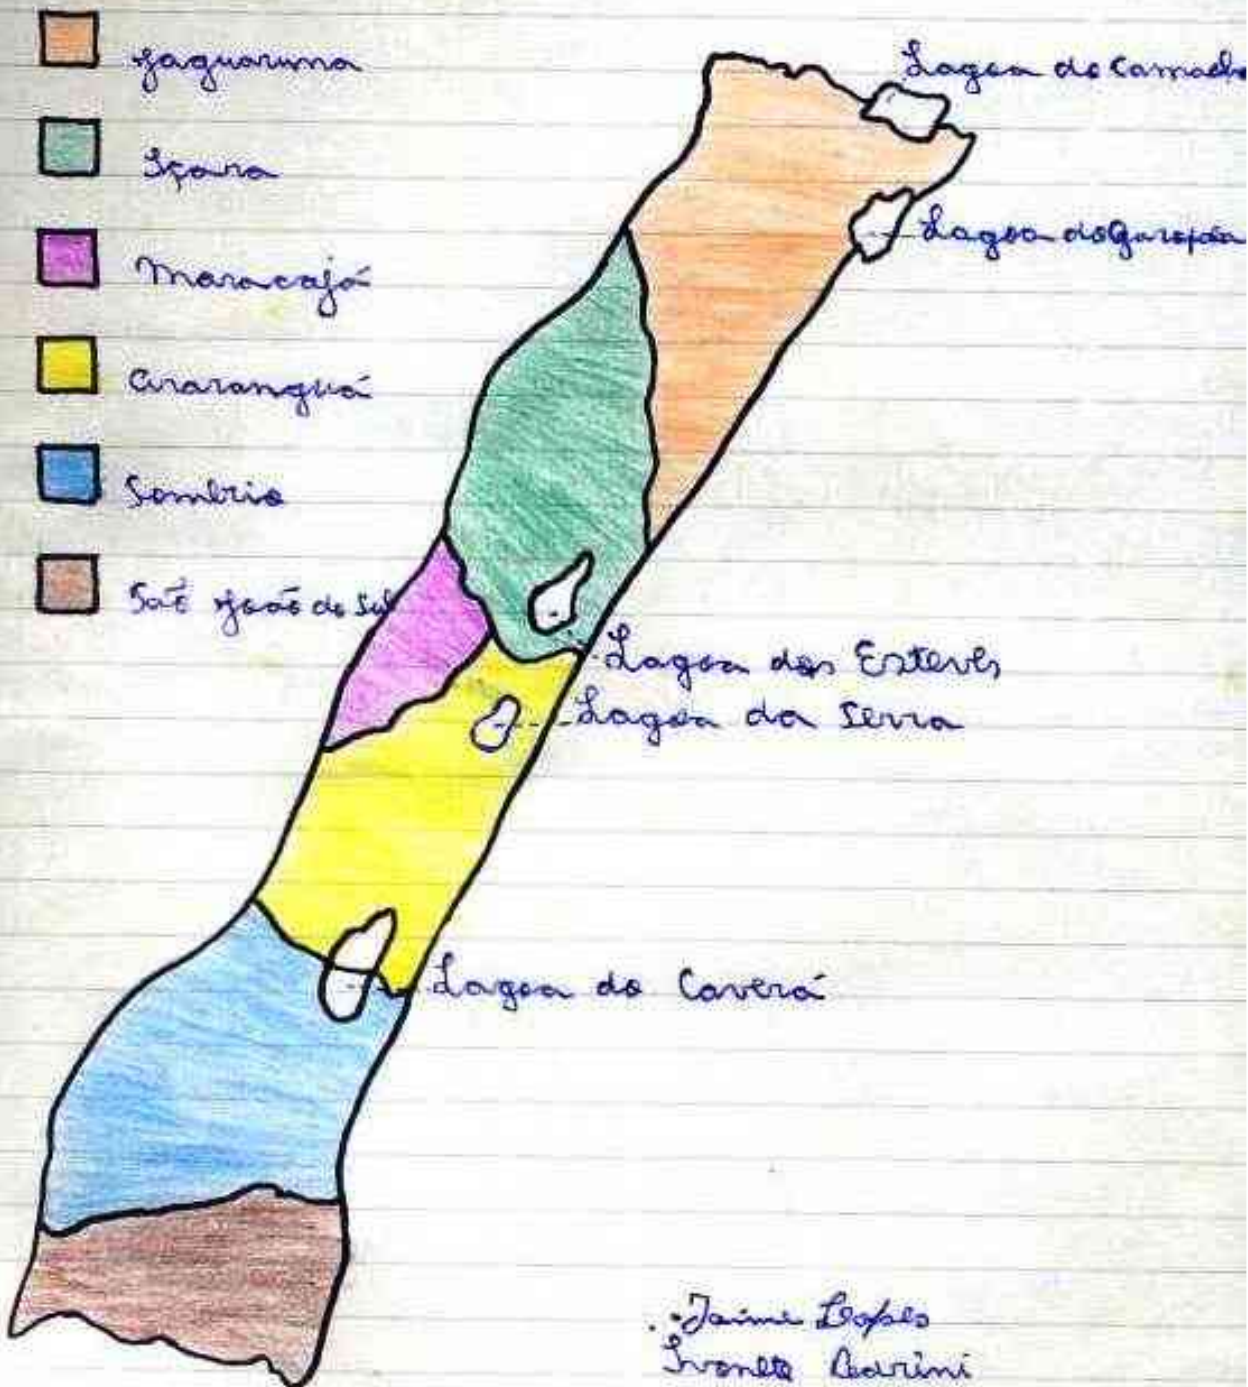 Jaguaruna
Içara
Maracajá
Araranguá
Sombrio
São João do Sul
Lagoa do Camacho
Lagoa do Garopaba
Lagoa dos Esteves
Lagoa da Serra
Lagoa do Caverá
Jaime Lopes
Ivonete